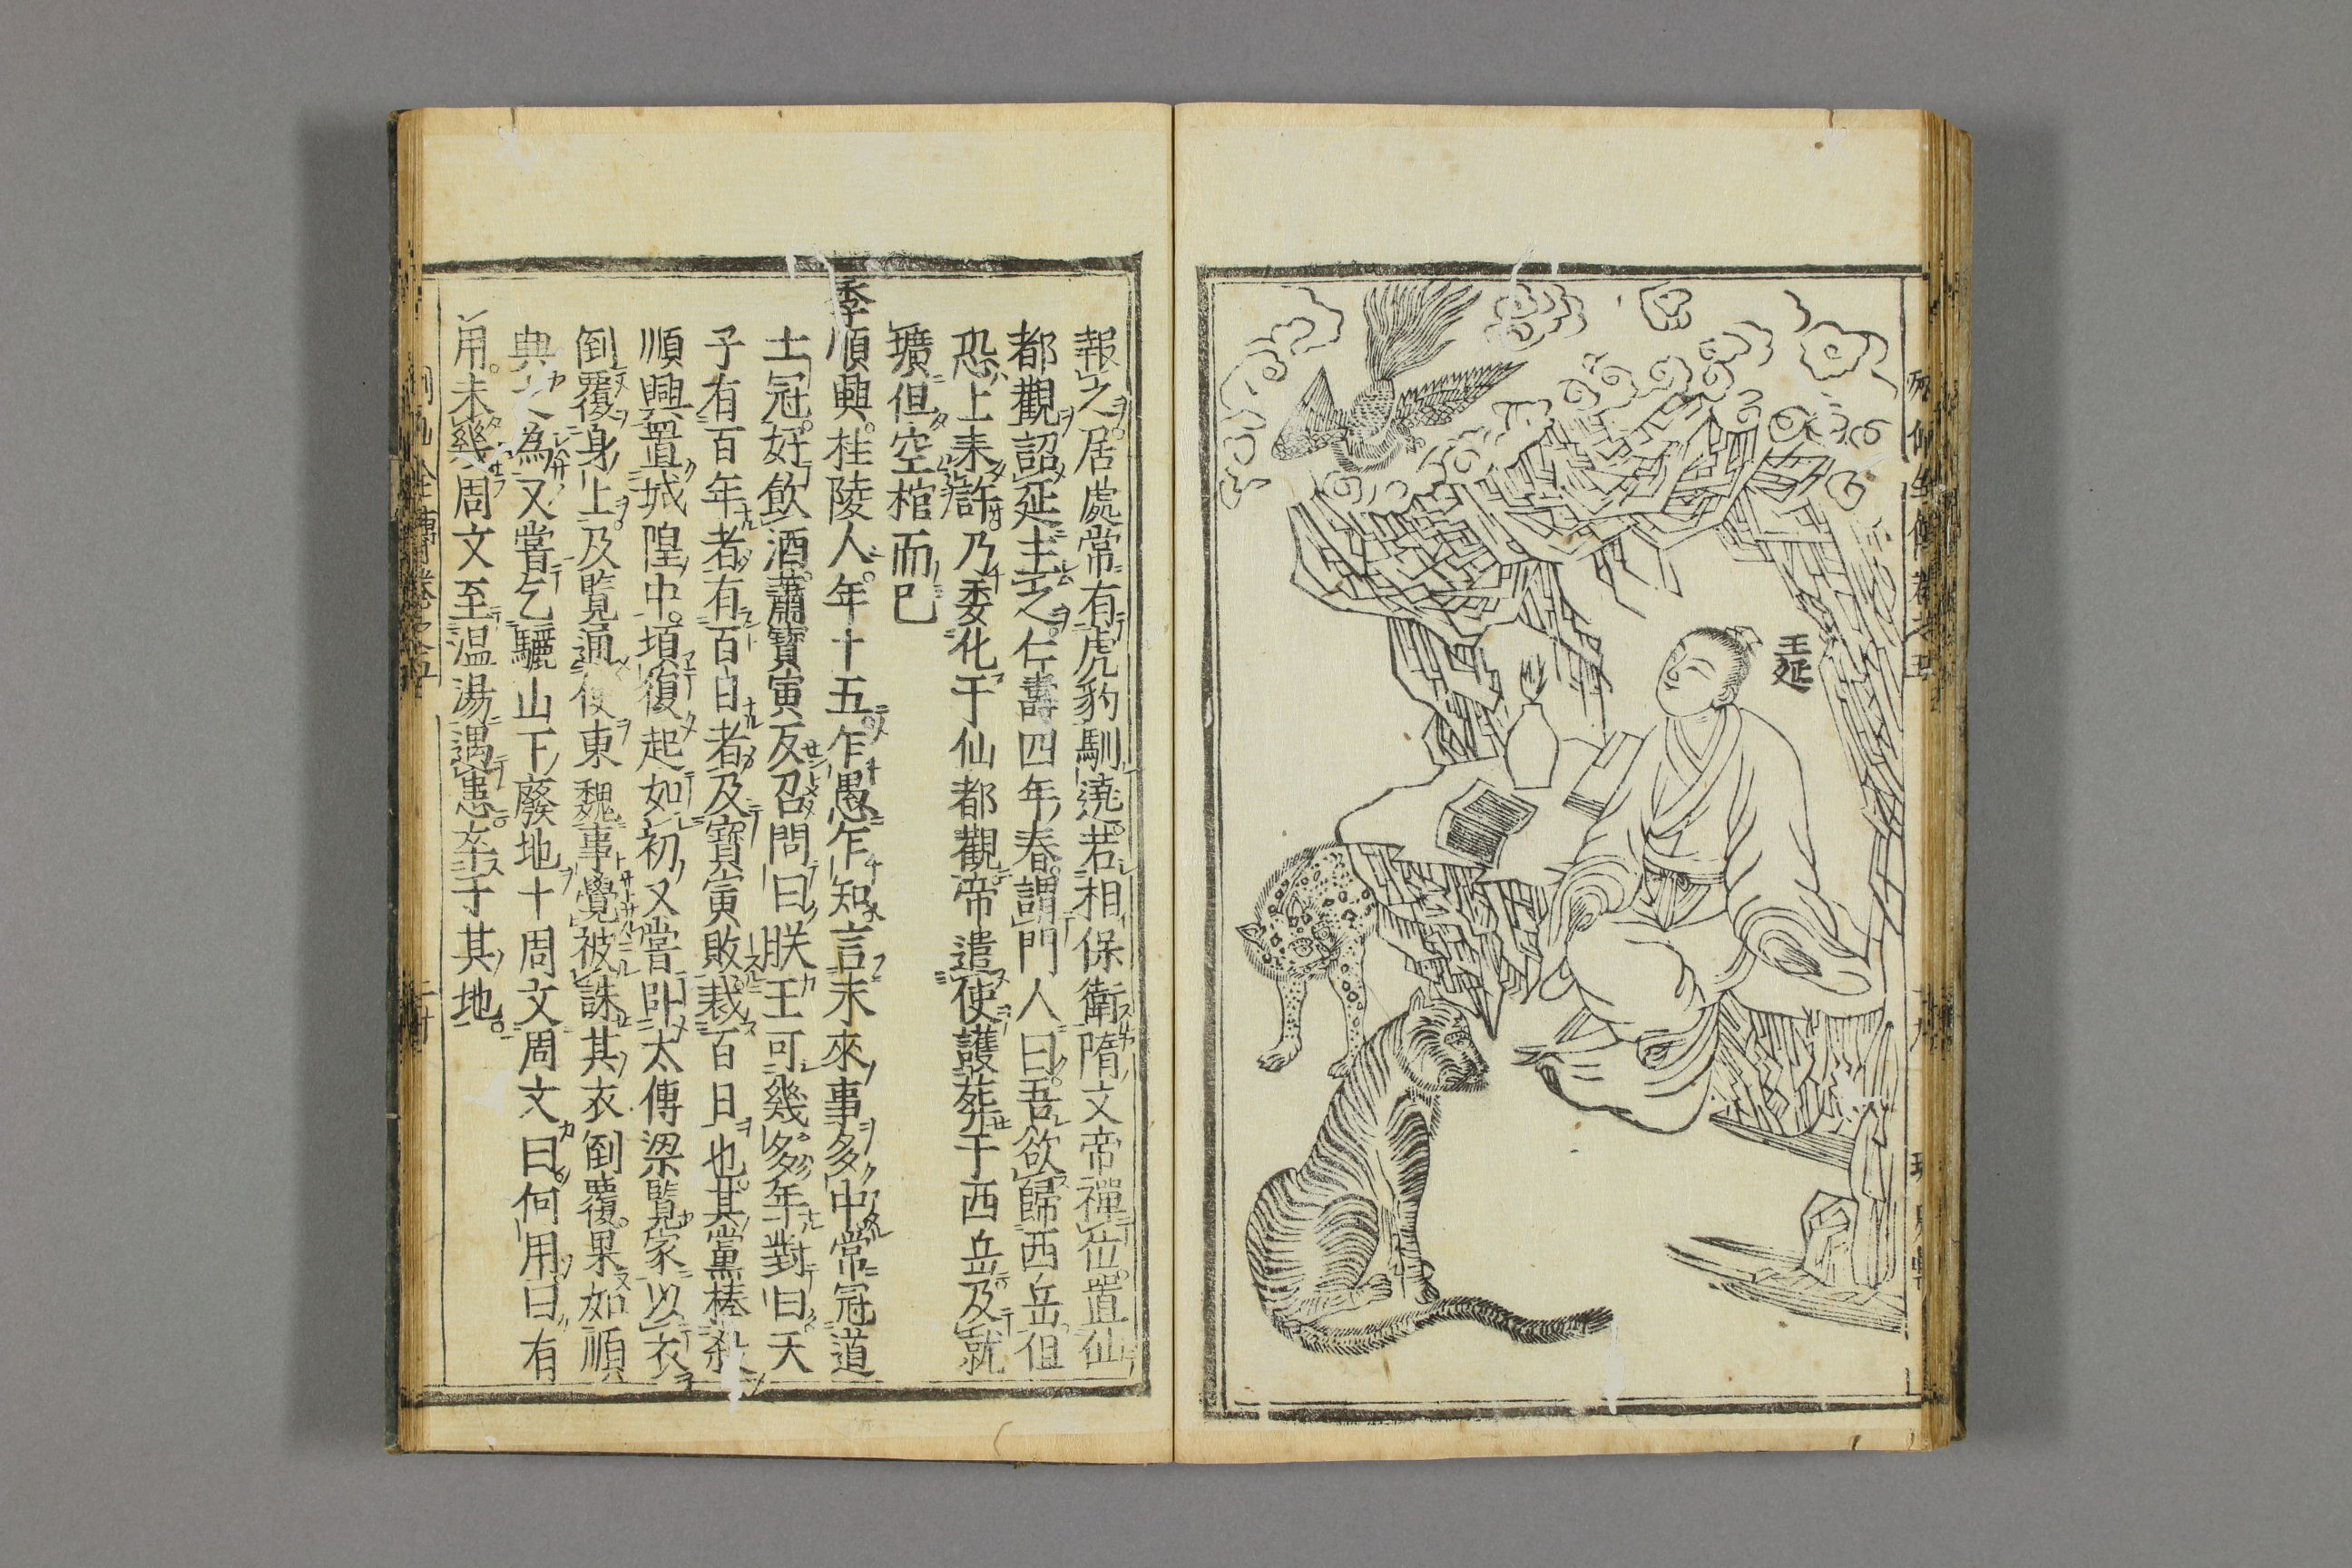 王延
報之居處常有虎豹馴遶若相保衛隋文帝禪位置仙
都觀詔延主之仁壽四年春謂門人曰吾欲歸西岳但
恐上未許乃委化于仙都觀帝遣使護葬于西岳及就
壙但空棺而已
李順興桂陵人年十五乍愚乍知言未來事多中常冠道
士冠好飲酒蕭寶寅反召問曰朕王可幾多年對曰天
子有百年者有百日者及寶寅敗裁百日也其黨棒殺
順興置城隍中頃復起如初又嘗卧太傅梁覽家以衣
倒覆身上及覧通使東魏事覺被誅其衣倒覆果如順
典之為又嘗乞驪山下廢地十周文周文曰何用曰有
用未幾周文至温湯遇患卒于其地
列仙全傳卷之五
二十